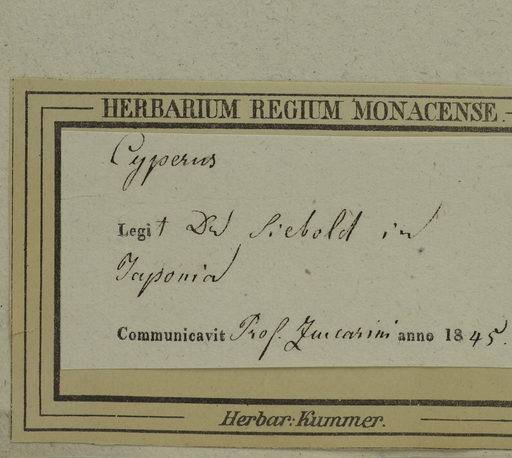 HERBARIUM REGIUM MONACENSE.
Cyperus
Legit Dr Siebold in
Japonia
Communicavit Prof. Zuccarini anno 1845.
Herbar: Kummer.